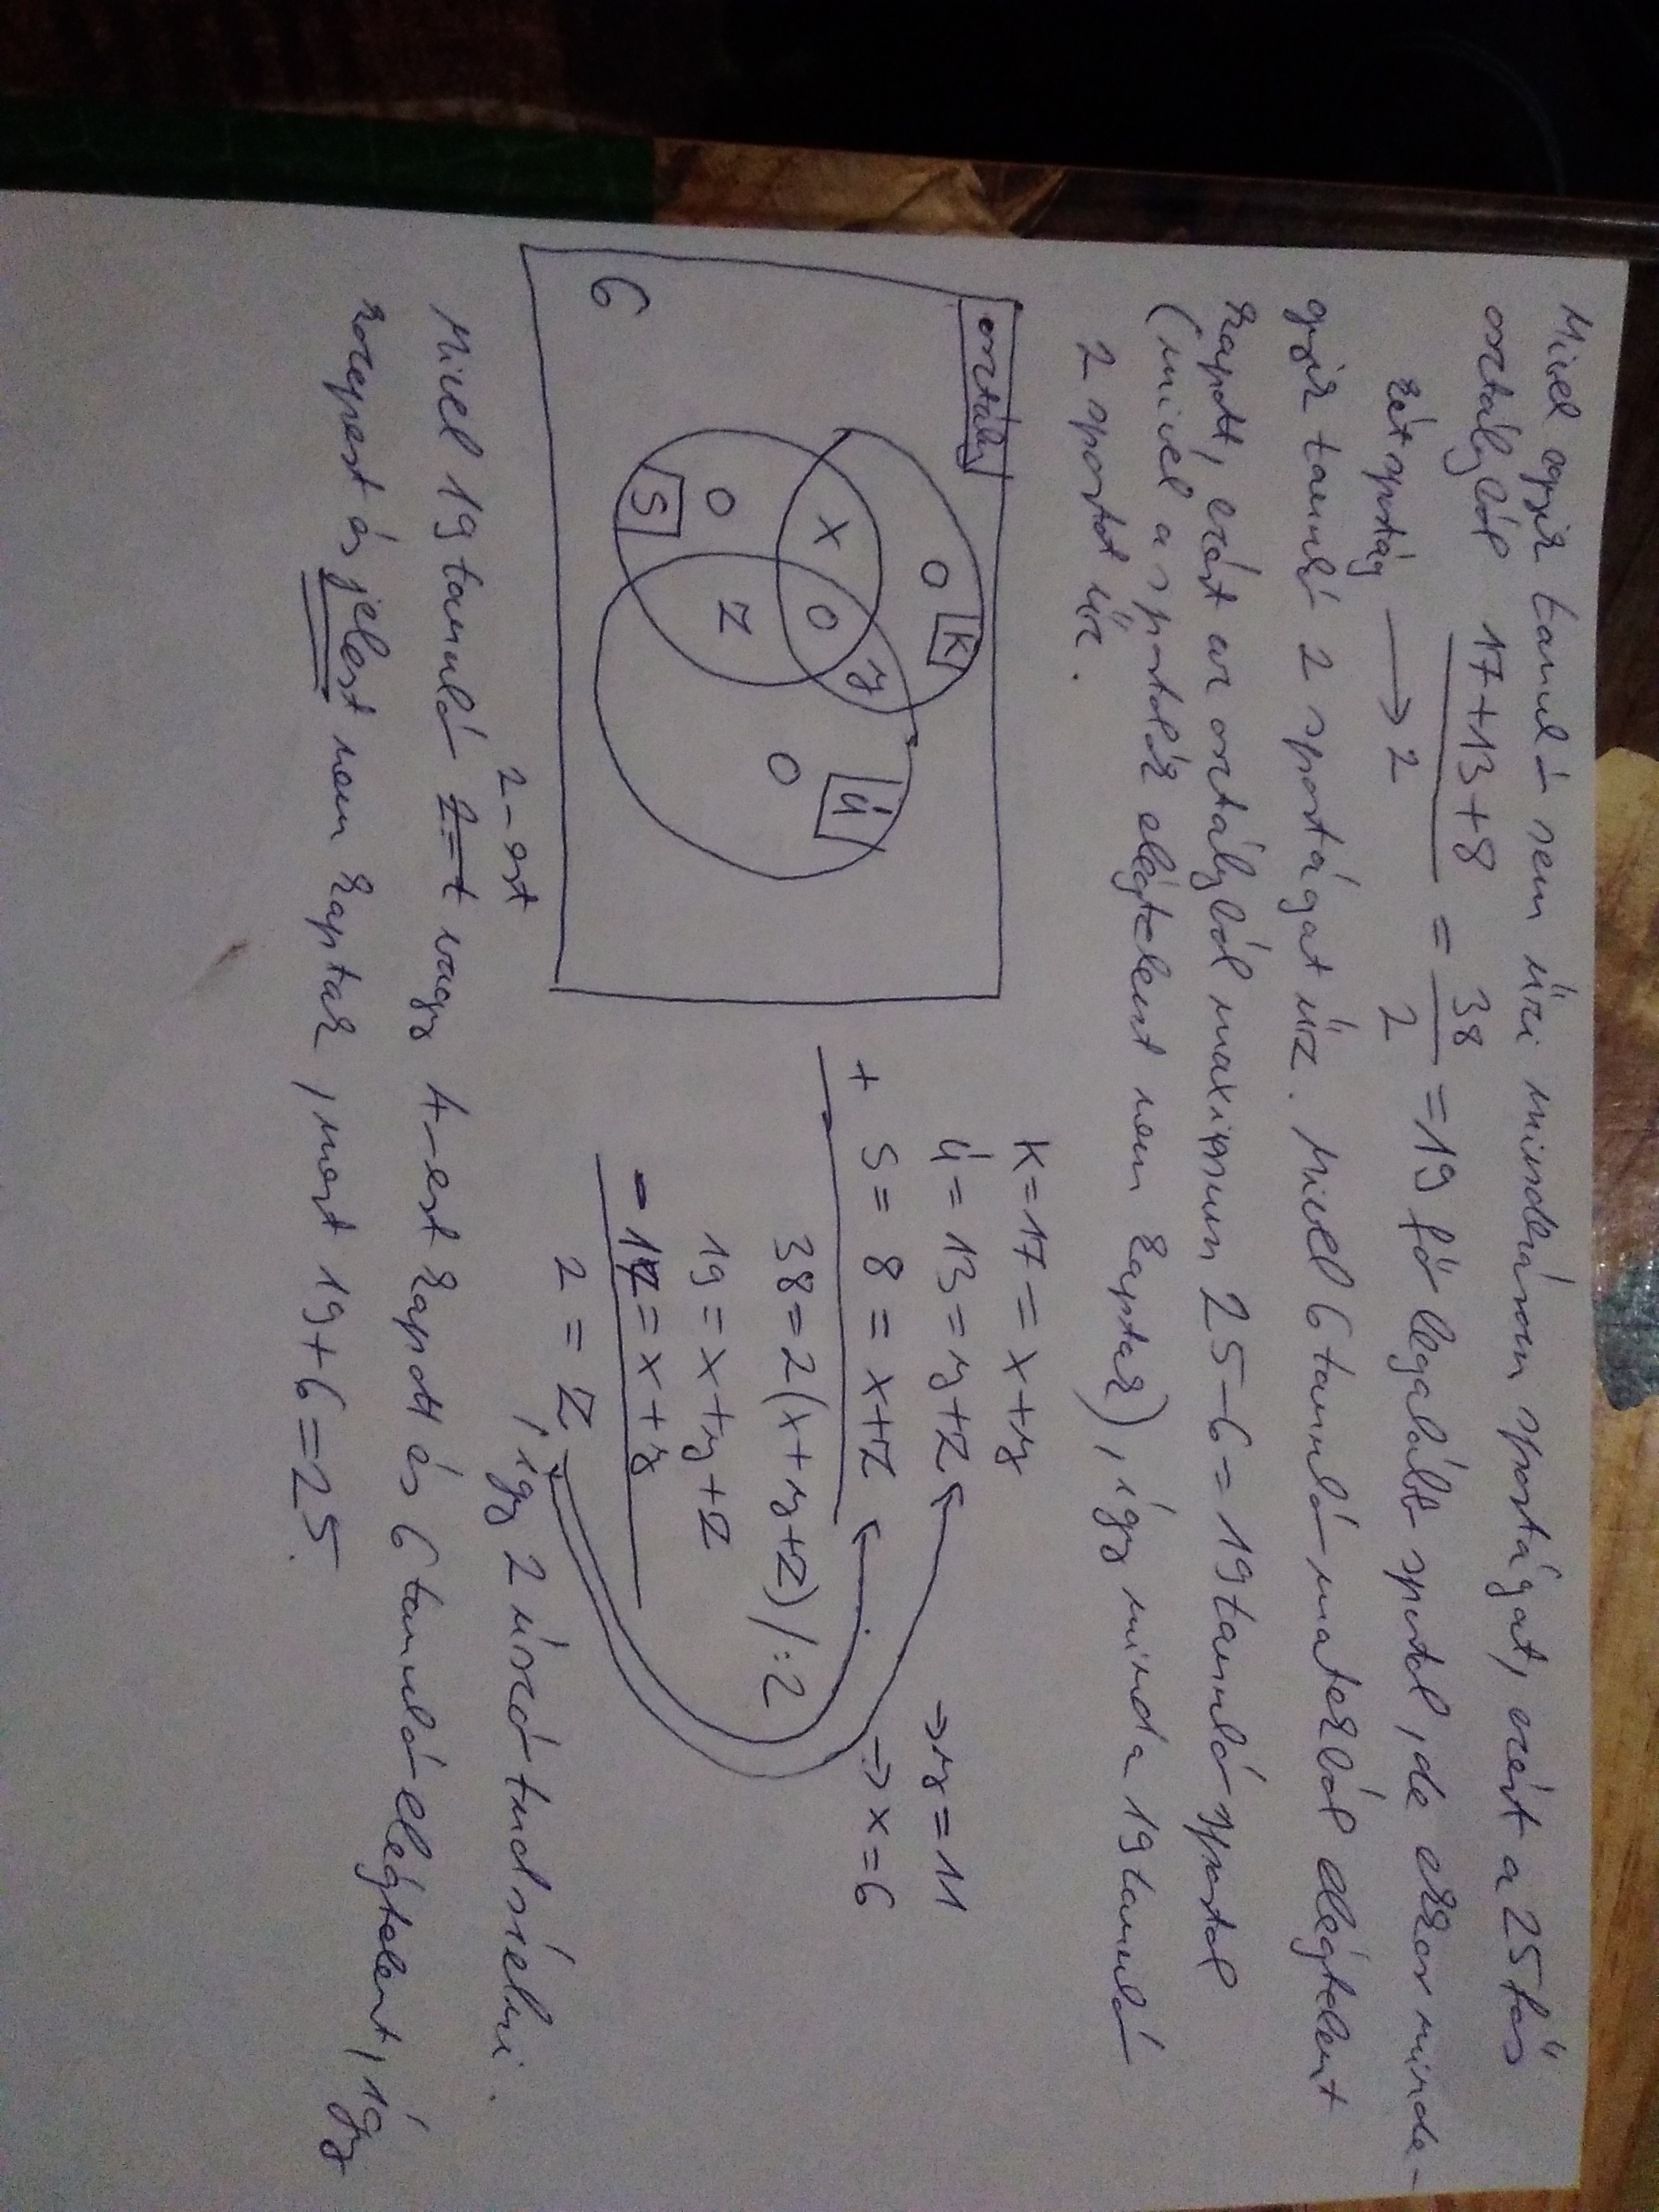 Mivel egyik tanuló sem űzi mindhárom sportágat, ezért a 25 fős
osztályból 17+13+8 / 2 = 38/2 = 19 fő legalább sportol, de ekkor minda-
két sportág → 2
gyik tanuló 2 sportágat űz. Mivel 6 tanuló matekból elégtelent
kapott, ezért az osztályból maximum 25-6=19 tanuló sportol
(mivel a sportolók elégtelent nem kaptak), így mind a 19 tanuló
2 sportot űz.
osztály
K
0
x
0
y
Ú
0
z
0
S
6
K=17=x+y
Ú=13=y+z ⇒ y=11
+ S=8=x+z ⇒ x=6
38=2(x+y+z) /:2
19=x+y+z
- 17=x+y
2=z, így 2 úszó tud síelni.
2-est
Mivel 19 tanuló vagy 4-est kapott és 6 tanuló elégtelent, így
közepest és jelest nem kaptak, mert 19+6=25.